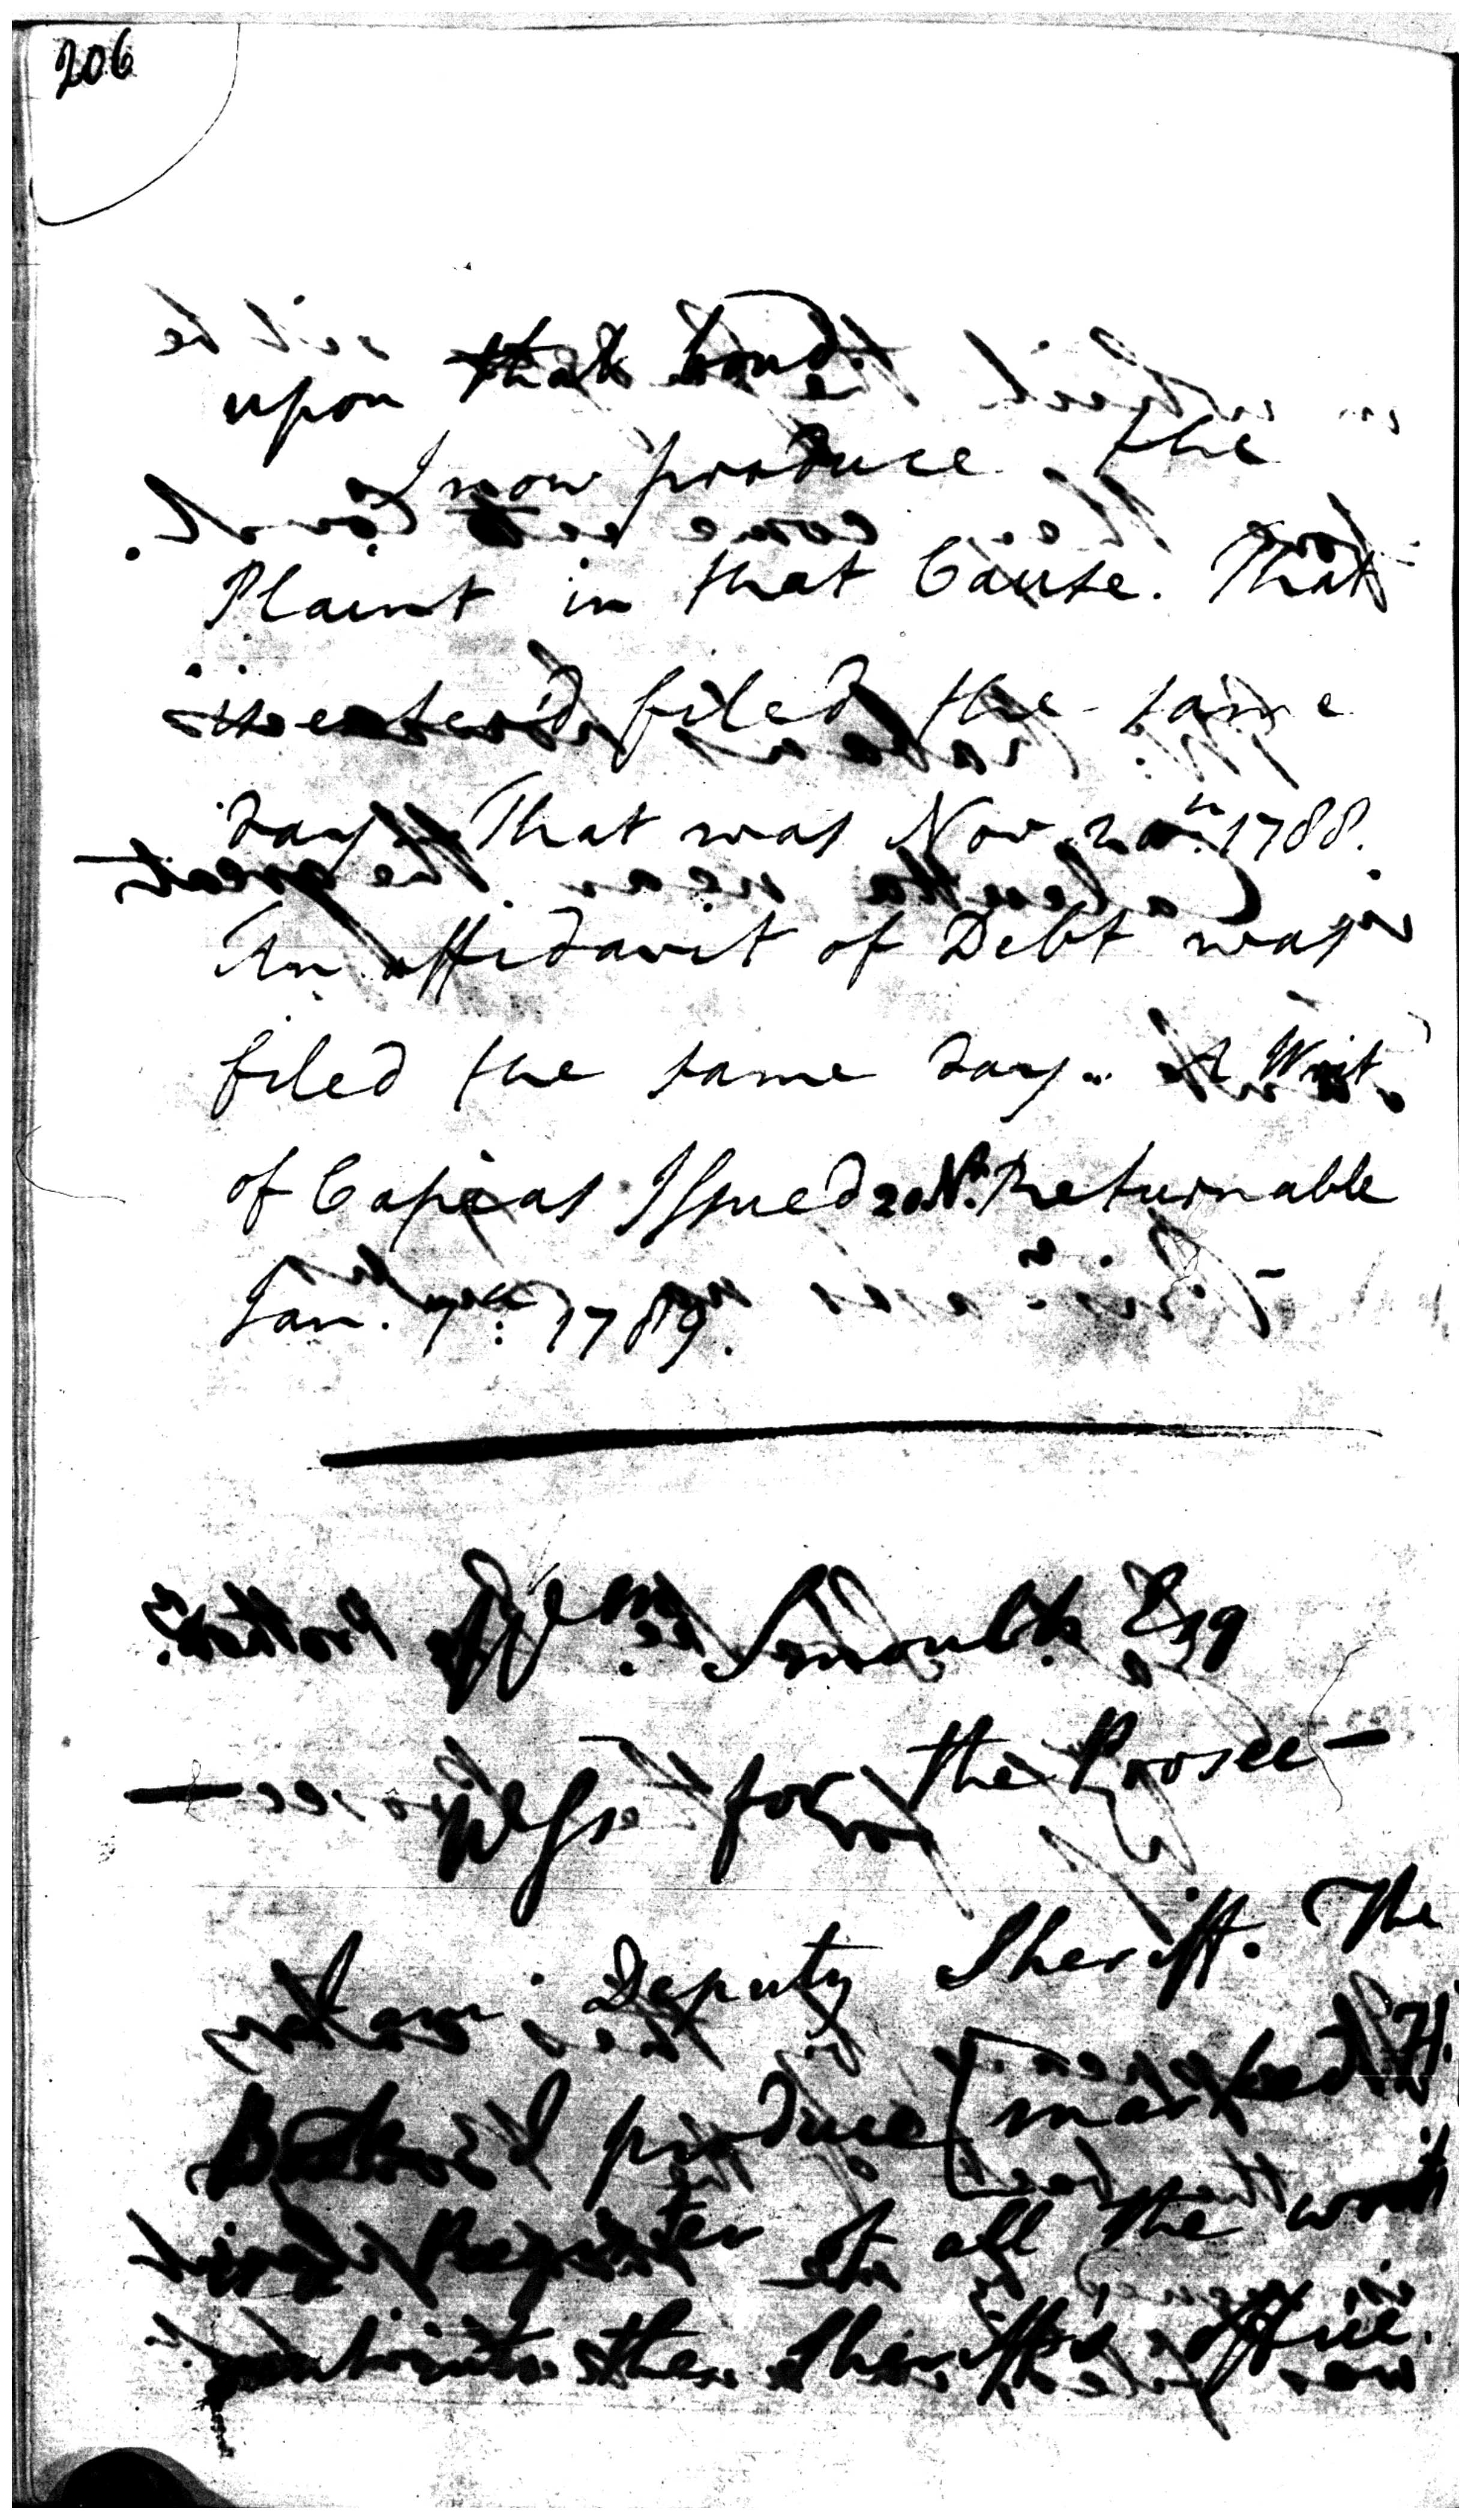 206
upon that bond.
I now produce the
Plaint in that Cause. That
is enter'd filed the same
day. That was Nov. 20th. 1788.
An affidavit of Debt was
filed the same day. A Writ
of Capias Issued 20 Nr. Returnable
Jan. 7th: 1789.
Wm. Smoult Esq
Wss. for the Prosec—
I am Deputy Sheriff. The
Book I produce [marked H.
Register of all the writ
into the Sheriff's Office.